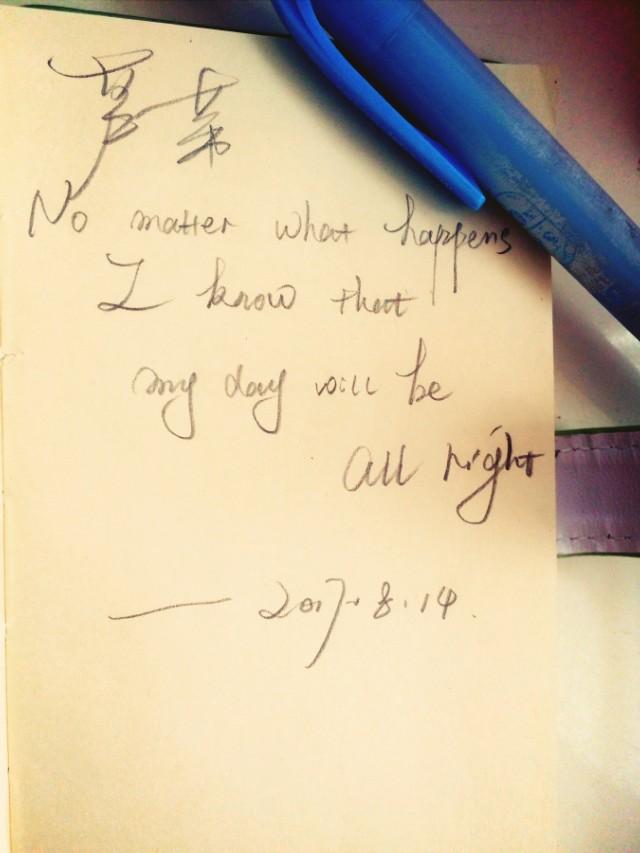 No matter what happens
I know that
my day will be
all right
— 2017.8.14.